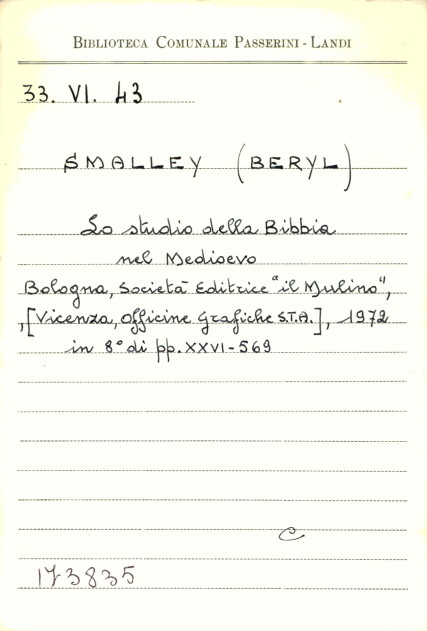 BIBLIOTECA COMUNALE PASSERINI-LANDI
33. VI. 43
SMALLEY (BERYL)
Lo studio della Bibbia
nel Medioevo
Bologna, Società Editrice "il Mulino",
,[Vicenza, Officine Grafiche S.T.A.], 1972
in 8° di pp. XXVI-569
C
173835